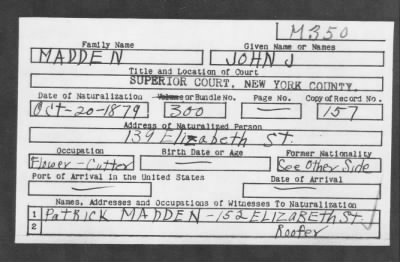 M350
Family Name Given Name or Names
MADDEN JOHN J
Title and Location of Court
SUPERIOR COURT, NEW YORK COUNTY.
Date of Naturalization Volume or Bundle No. Page No. Copy of Record No.
Oct-20-1879 300 — 157
Address of Naturalized Person
139 Elizabeth St.
Occupation Birth Date or Age Former Nationality
Flower-Cutter — See Other Side
Port of Arrival in the United States Date of Arrival
— —
Names, Addresses and Occupations of Witnesses To Naturalization
1 PATRICK MADDEN - 152 ELIZABETH St.
2 Roofer